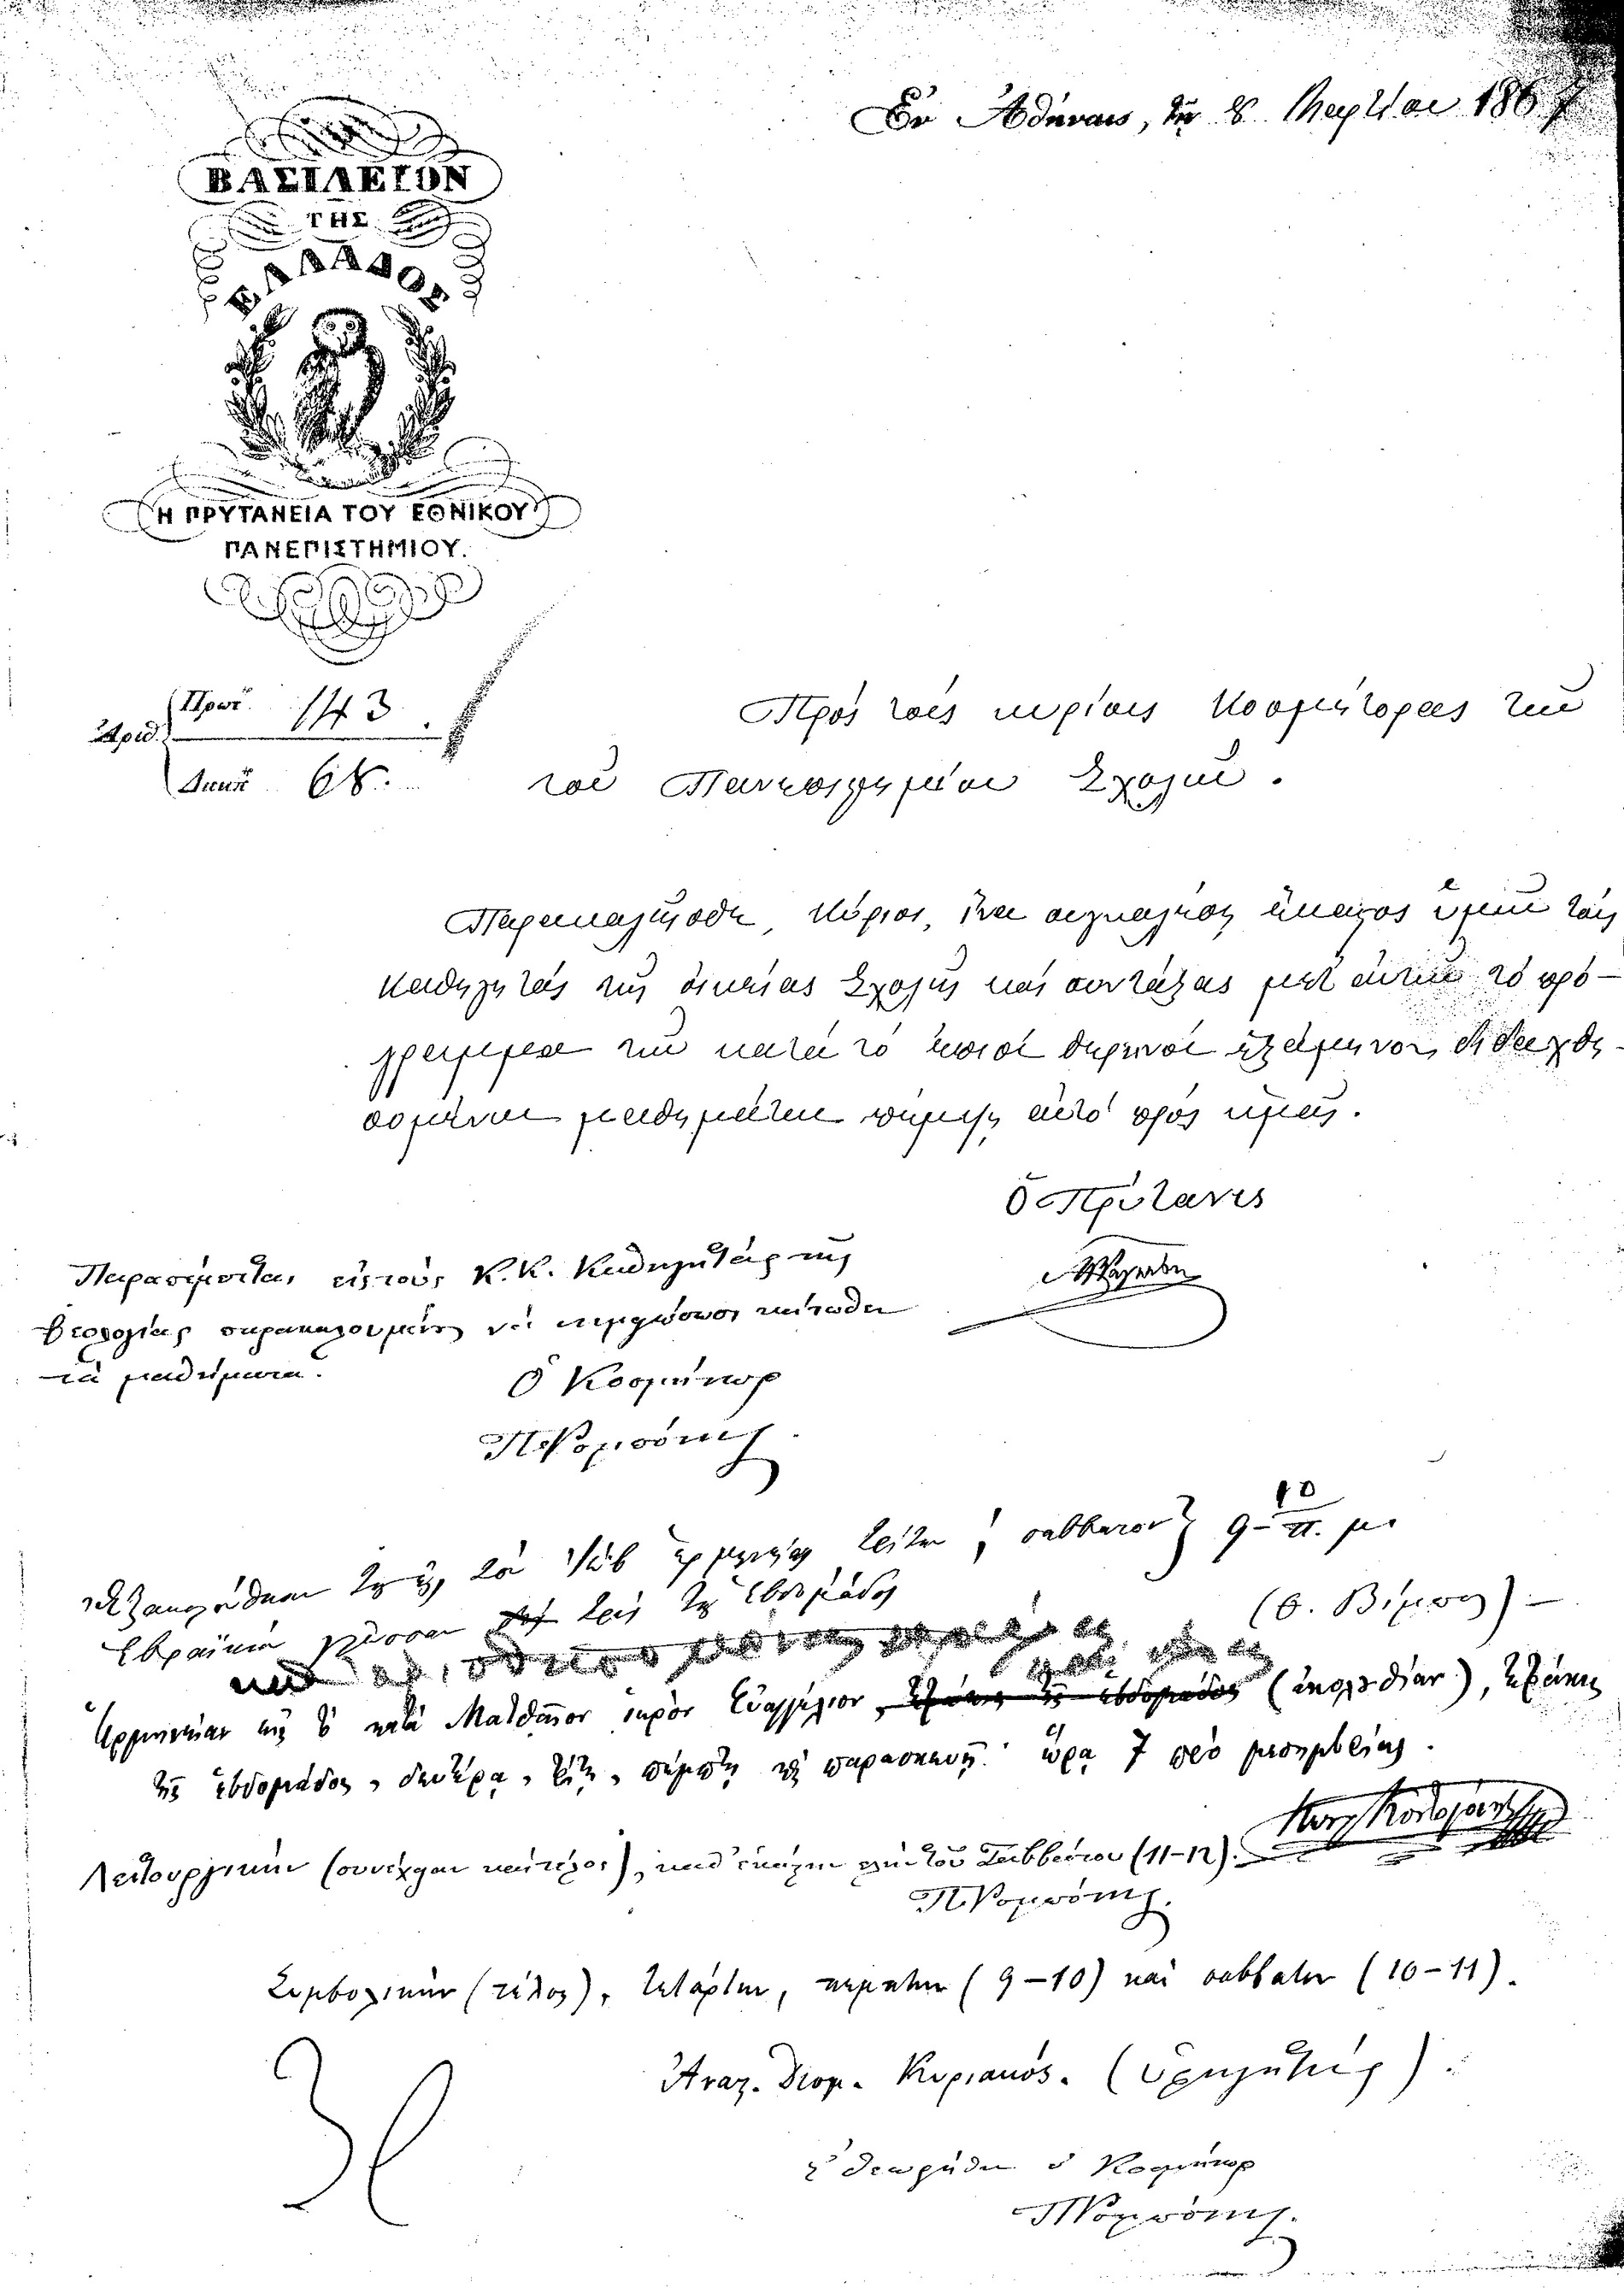 Ἐν Ἀθήναις, τῇ 8 Μαρτίου 1867
ΒΑΣΙΛΕΙΟΝ
ΤΗΣ
ΕΛΛΑΔΟΣ
Η ΠΡΥΤΑΝΕΙΑ ΤΟΥ ΕΘΝΙΚΟΥ
ΠΑΝΕΠΙΣΤΗΜΙΟΥ.
Πρωτ. 143
Ἀριθ.
Διεκπ. 68.
Πρὸς τοὺς κυρίους Κοσμήτορας τῶν
τοῦ Πανεπιστημίου Σχολῶν.
Παρακαλεῖσθε, Κύριοι, ἵνα συγκαλέσῃ ἕκαστος ὑμῶν τοὺς
καθηγητὰς τῆς οἰκείας Σχολῆς καὶ συντάξας μετ' αὐτῶν τὸ πρό-
γραμμα τῶν κατὰ τὸ ἐπιὸν θερινὸν ἑξάμηνον διδαχθη-
σομένων μαθημάτων πέμψῃ αὐτὸ πρὸς ἡμᾶς.
Ὁ Πρύτανις
Παραπέμπεται εἰς τοὺς Κ.Κ. Καθηγητὰς τῆς
Θεολογίας παρακαλουμένους νὰ σημειώσωσι κάτωθεν
τὰ μαθήματα.
Ὁ Κοσμήτωρ
Π. Ῥομπότης
τοῦ Ἰὼβ ἑρμηνείας τρίτην, σάββατον 9–10 π. μ.
Ἑβραϊκὴν γλῶσσαν τρὶς τῆς ἑβδομάδος
(Θ. Βίμπος) –
Ἑρμηνείαν εἰς τὸ κατὰ Ματθαῖον ἱερὸν Εὐαγγέλιον, (ἀκολουθίαν), τετράκις
τῆς ἑβδομάδος, δευτέρᾳ, τρίτῃ, πέμπτῃ καὶ παρασκευῇ. ὥρᾳ 7 πρὸ μεσημβρίας.
Κων. Κοντογόνης
Λειτουργικὴν (συνέχειαν καὶ τέλος), καθ' ἑκάστην πλὴν τοῦ Σαββάτου (11–12).
Π. Ῥομπότης.
Συμβολικὴν (τέλος), τετάρτην, πέμπτην (9–10) καὶ σάββατον (10–11).
Ἀναστ. Διομ. Κυριακός. (ὑφηγητής).
Ἐθεωρήθη ὁ Κοσμήτωρ
Π. Ῥομπότης.